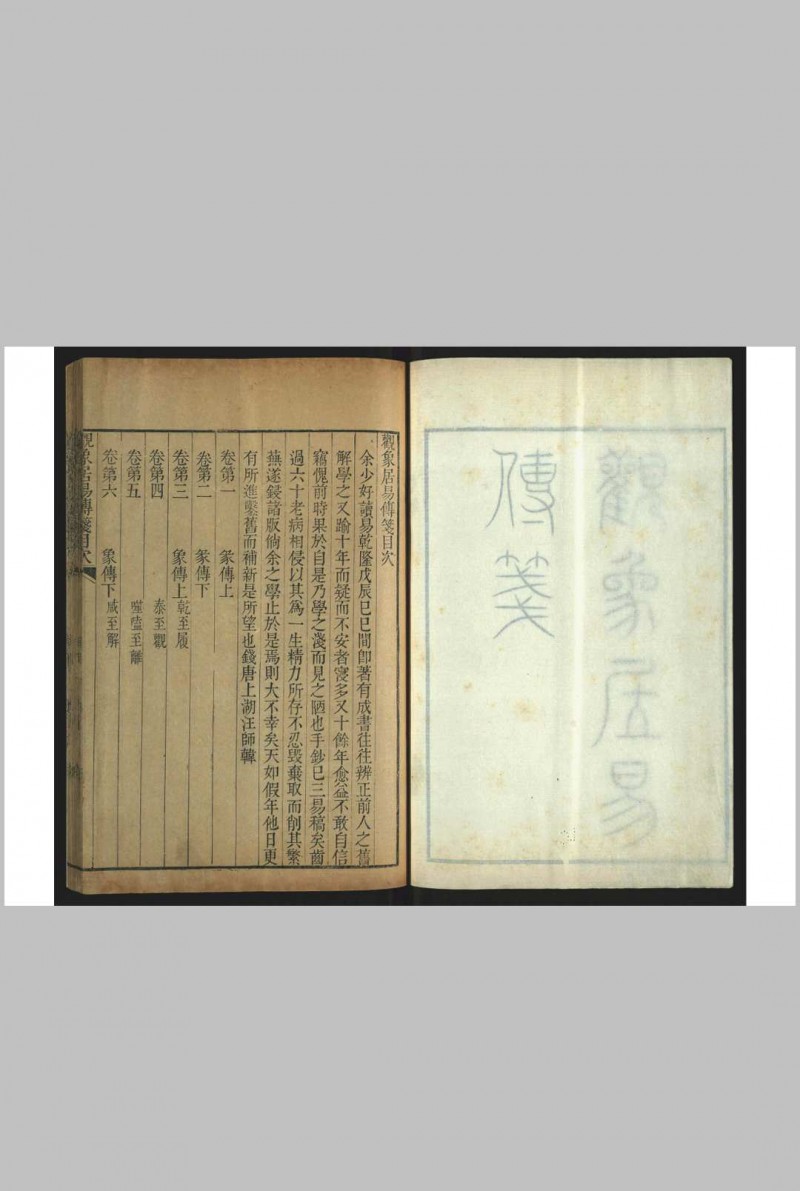 觀象居易
傳箋
觀象居易傳箋目次
余少好讀易乾隆戊辰己巳間卽著有成書往往辨正前人之舊
解學之又踰十年而疑而不安者寖多又十餘年愈益不敢自信
竊愧前時果於自是乃學之淺而見之陋也手鈔已三易稿矣齒
過六十老病相侵以其爲一生精力所存不忍毀棄取而削其繁
蕪遂鋟諸版倘余之學止於是焉則大不幸矣天如假年他日更
有所進繫舊而補新是所望也錢唐上湖汪師韓
卷第一　彖傳上
卷第二　彖傳下
卷第三　象傳上乾至履
卷第四　泰至觀
卷第五　噬嗑至離
卷第六　象傳下咸至解
觀象居易傳箋目次